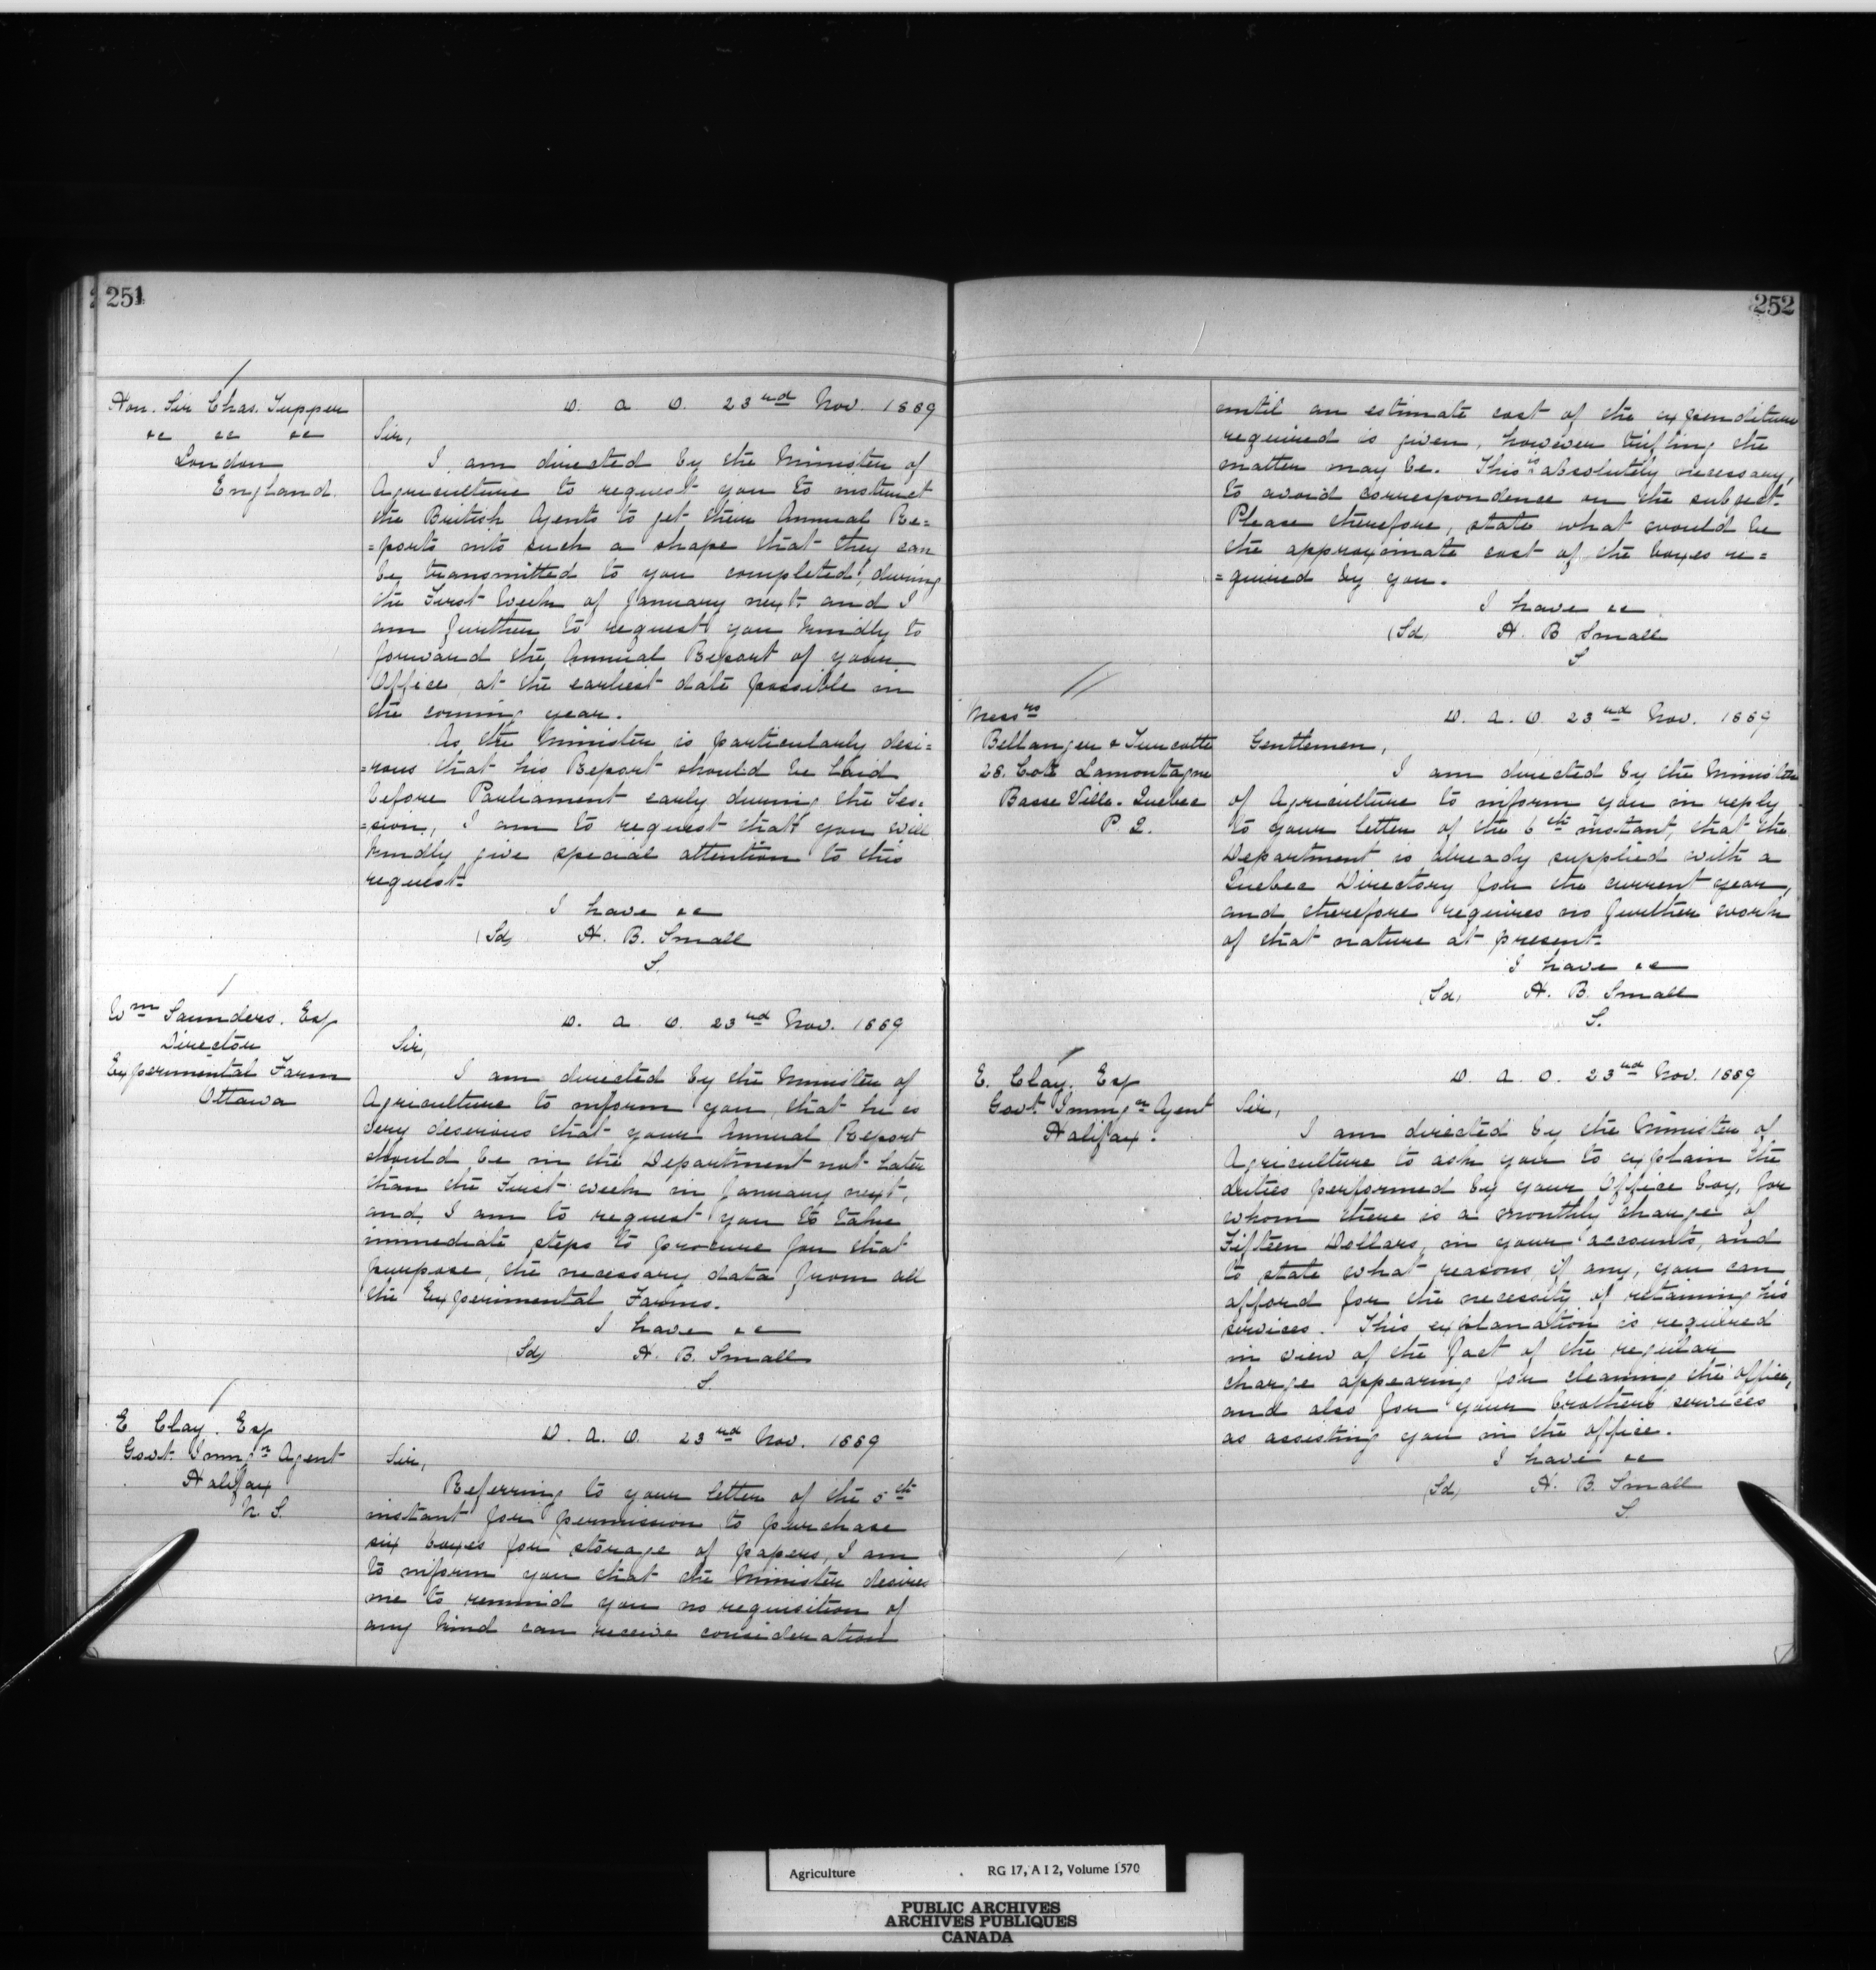 251
Hon. Sir Chas. Tupper
&c &c &c
London
England.
D. A. O. 23rd Nov. 1889
Sir,
I am directed by the Minister of
Agriculture to request you to instruct
the British Agents to get their Annual Re=
=ports into such a shape that they can
be transmitted to you completed, during
the First Week of January next. and I
am further to request you kindly to
forward the Annual Report of your
Office at the earliest date possible in
the coming year.
As the Minister is particularly desi=
=rous that his Report should be laid
before Parliament early during the Ses=
=sion, I am to request that you will
kindly give special attention to this
request.
I have &c
(Sd) H. B. Small
S.
Wm Saunders. Esq
Director
Experimental Farm
Ottawa
D. A. O. 23rd Nov. 1889
Sir,
I am directed by the Minister of
Agriculture to inform you, that he is
very deserious that your Annual Report
should be in the Department not later
than the First week in January next,
and I am to request you to take
immediate steps to procure for that
purpose, the necessary data from all
the Experimental Farms.
I have &c
(Sd) H. B. Small
S.
E Clay. Esq
Govt. Immgn Agent
Halifax
N. S.
D. A. O. 23rd Nov. 1889
Sir,
Referring to your letter of the 5th
instant for permission to purchase
six boxes for storage of papers, I am
to inform you that the Minister desires
me to remind you no requisition of
any kind can receive consideration
252
until an estimate cost of the expenditure
required is given, however trifling the
matter may be. This is absolutely necessary,
to avoid correspondence on the subject.
Please therefore, state what would be
the approximate cost of the boxes re=
=quired by you.
I have &c
(Sd) H. B Small
S
Messrs
Bellanger & Turcotte
28. Coté Lamontagne
Basse Ville. Quebec
P. Q.
D. A. O. 23rd Nov. 1889
Gentlemen,
I am directed by the Minister
of Agriculture to inform you in reply
to your letter of the 6th instant, that the
Department is already supplied with a
Quebec Directory for the current year,
and therefore requires no further work
of that nature at present.
I have &c
(Sd) H. B. Small
S.
E. Clay. Esq
Govt. Immgn Agent
Halifax.
D. A. O. 23rd Nov. 1889
Sir,
I am directed by the Minister of
Agriculture to ask you to explain the
duties performed by your Office boy, for
whom there is a monthly charge of
Fifteen Dollars, in your accounts, and
to state what reasons, if any, you can
afford for the necessity of retaining his
services. This explanation is required
in view of the fact of the regular
charge appearing for cleaning the office,
and also for your brothers services
as assisting you in the office.
I have &c
(Sd) H. B. Small
S.
Agriculture RG 17, A I 2, Volume 1570
PUBLIC ARCHIVES
ARCHIVES PUBLIQUES
CANADA